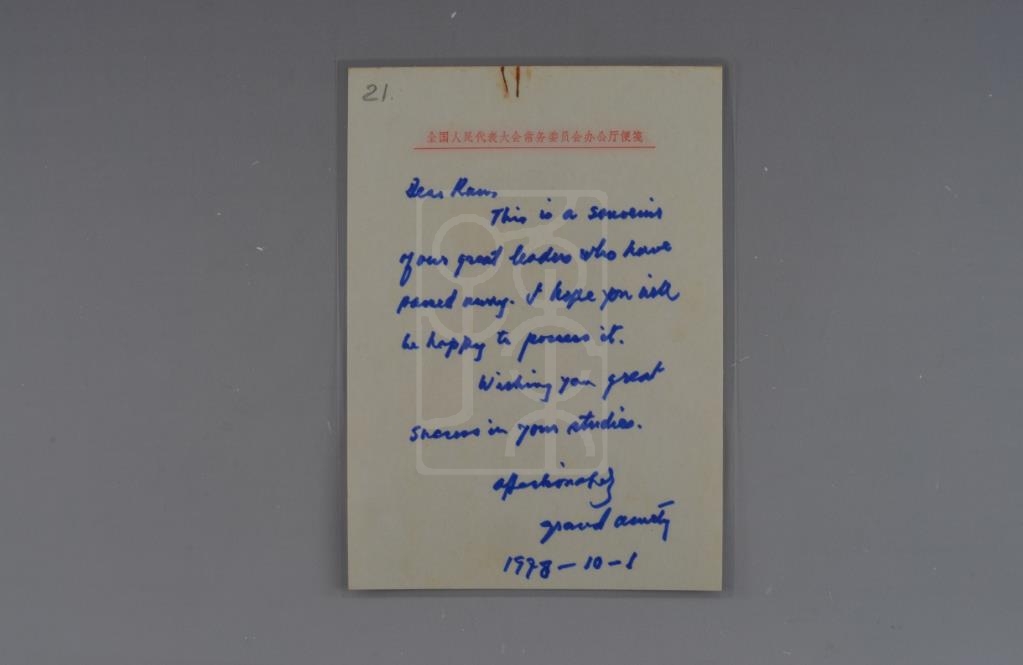 21.
全国人民代表大会常务委员会办公厅便笺
Dear
This is a souvenir
of our great leaders who have
passed away. I hope you will
be happy to possess it.
Wishing you great
success in your studies.
affectionately
grand aunty
1978-10-1